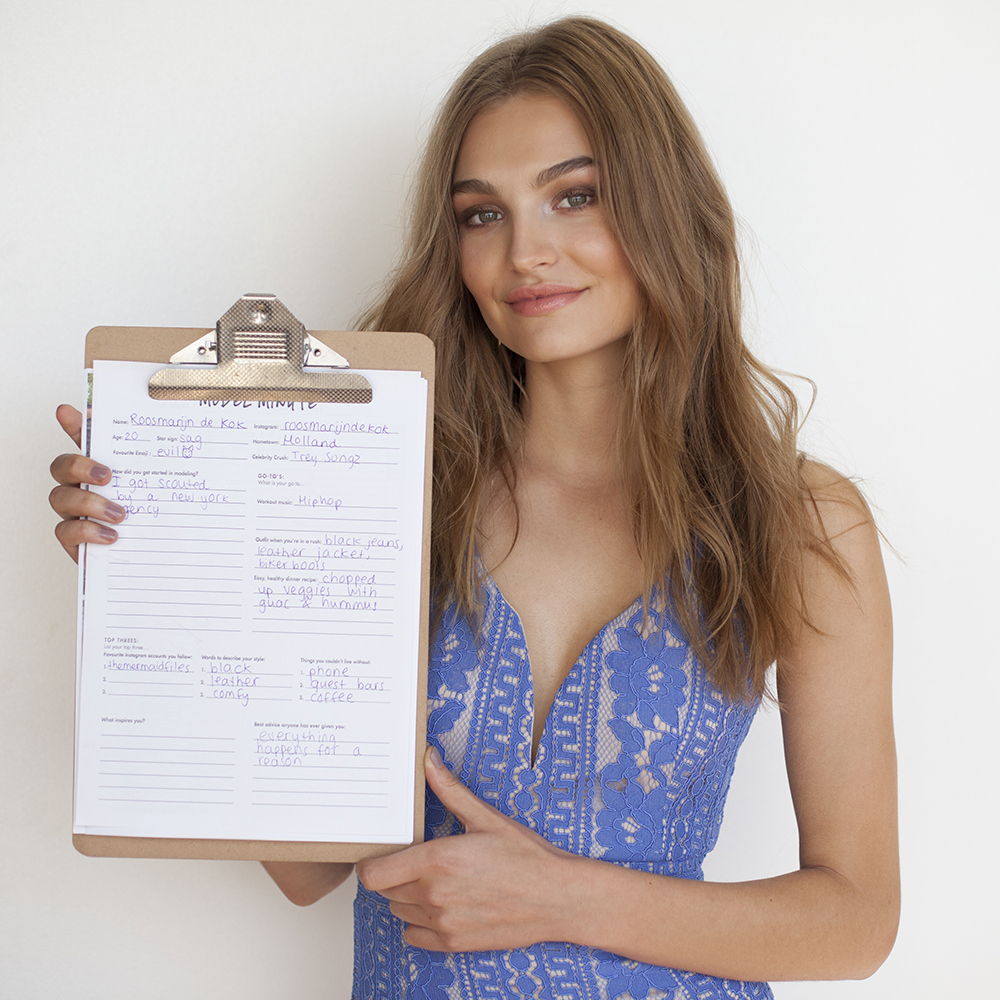 MODEL MINUTE
Name: Roosmarijn de Kok
Instagram: roosmarijndekok
Age: 20 Star sign: sag
Hometown: Holland
Favourite Emoji: evil 😈
Celebrity Crush: Trey Songz
How did you get started in modeling?
I got scouted
by a new york
agency
GO-TO'S:
What is your go-to...
Workout music: Hiphop
Outfit when you're in a rush: black jeans,
leather jacket,
biker boots
Easy, healthy dinner recipe: chopped
up veggies with
guac & hummus
TOP THREES:
List your top three...
Favourite Instagram accounts you follow:
1. themermaidfiles
2.
3.
Words to describe your style:
1. black
2. leather
3. comfy
Things you couldn't live without:
1. phone
2. quest bars
3. coffee
What inspires you?
Best advice anyone has ever given you:
everything
happens for a
reason